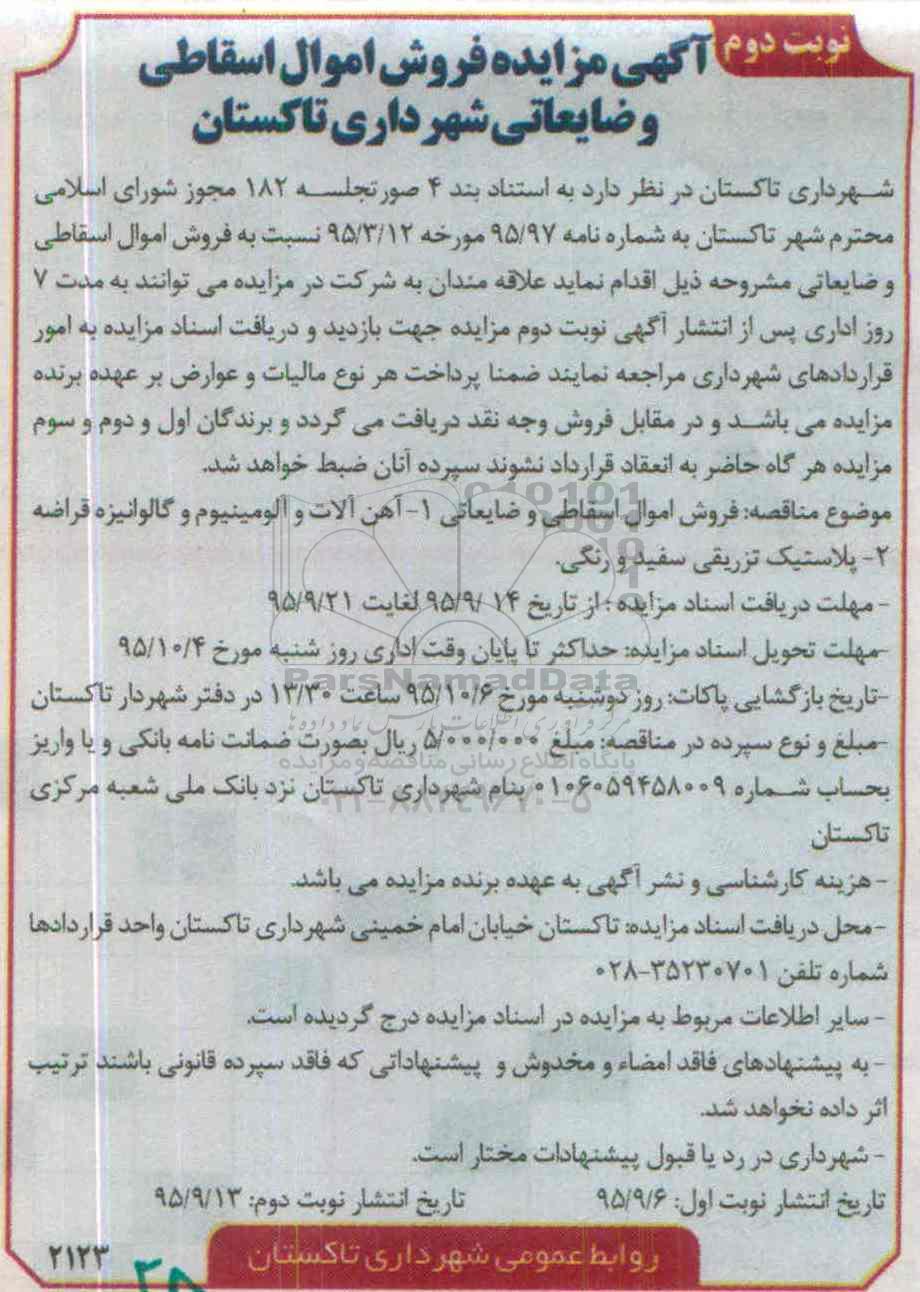 نوبت دوم
آگهی مزایده فروش اموال اسقاطی
و ضایعاتی شهرداری تاکستان
شهرداری تاکستان در نظر دارد به استناد بند ۴ صورتجلسه ۱۸۲ مجوز شورای اسلامی
محترم شهر تاکستان به شماره نامه ۹۵/۹۷ مورخه ۹۵/۳/۱۲ نسبت به فروش اموال اسقاطی
و ضایعاتی مشروحه ذیل اقدام نماید علاقه مندان به شرکت در مزایده می توانند به مدت ۷
روز اداری پس از انتشار آگهی نوبت دوم مزایده جهت بازدید و دریافت اسناد مزایده به امور
قراردادهای شهرداری مراجعه نمایند ضمنا پرداخت هر نوع مالیات و عوارض بر عهده برنده
مزایده می باشد و در مقابل فروش وجه نقد دریافت می گردد و برندگان اول و دوم و سوم
مزایده هر گاه حاضر به انعقاد قرارداد نشوند سپرده آنان ضبط خواهد شد.
موضوع مناقصه: فروش اموال اسقاطی و ضایعاتی ۱- آهن آلات و آلومینیوم و گالوانیزه قراضه
۲- پلاستیک تزریقی سفید و رنگی.
- مهلت دریافت اسناد مزایده : از تاریخ ۱۴ /۹۵/۹ لغایت ۹۵/۹/۲۱
-مهلت تحویل اسناد مزایده: حداکثر تا پایان وقت اداری روز شنبه مورخ ۹۵/۱۰/۴
-تاریخ بازگشایی پاکات: روز دوشنبه مورخ ۹۵/۱۰/۶ ساعت ۱۳/۳۰ در دفتر شهردار تاکستان
-مبلغ و نوع سپرده در مناقصه: مبلغ ۵/۰۰۰/۰۰۰ ریال بصورت ضمانت نامه بانکی و یا واریز
بحساب شماره ۰۱۰۶۰۵۹۴۵۸۰۰۹ بنام شهرداری تاکستان نزد بانک ملی شعبه مرکزی
تاکستان
- هزینه کارشناسی و نشر آگهی به عهده برنده مزایده می باشد.
-محل دریافت اسناد مزایده: تاکستان خیابان امام خمینی شهرداری تاکستان واحد قراردادها
شماره تلفن ۳۵۲۳۰۷۰۱-۰۲۸
- سایر اطلاعات مربوط به مزایده در اسناد مزایده درج گردیده است.
- به پیشنهادهای فاقد امضاء و مخدوش و پیشنهاداتی که فاقد سپرده قانونی باشند ترتیب
اثر داده نخواهد شد.
- شهرداری در رد یا قبول پیشنهادات مختار است.
تاریخ انتشار نوبت اول: ۹۵/۹/۶ تاریخ انتشار نوبت دوم: ۹۵/۹/۱۳
روابط عمومی شهرداری تاکستان
۲۱۲۳
۲۵
ParsNamadData
پایگاه اطلاع رسانی مناقصه و مزایده
۰۲۱-۸۸۳۴۹۶۷۰-۵